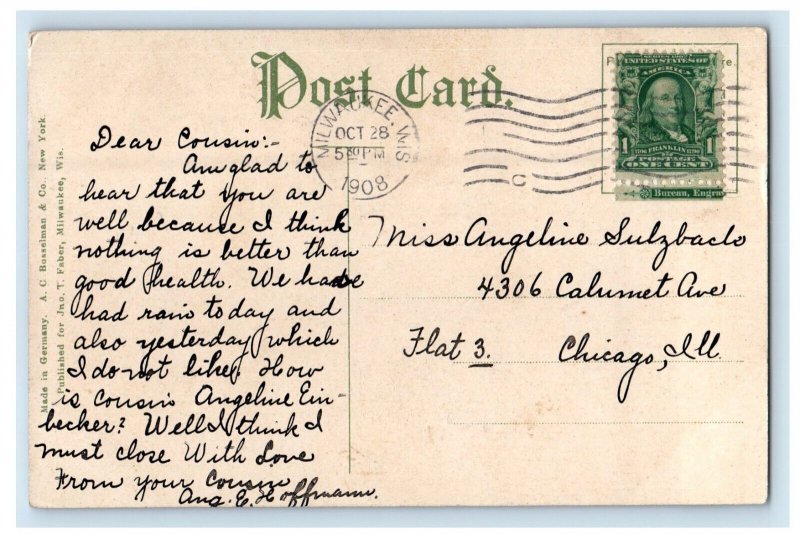 Post Card.
MILWAUKEE, WIS
OCT 28
5 30 PM
1908
C
UNITED STATES OF
AMERICA
1 FRANKLIN 1
1706 1790
POSTAGE
ONE CENT
Bureau, Engra
Made in Germany. A. C. Bosselman & Co., New York.
Published for Jno. T. Faber, Milwaukee, Wis.
Dear Cousin:-
Am glad to
hear that you are
well because I think
nothing is better than
good health. We have
had rain today and
also yesterday which
I do not like. How
is cousin Angeline Ein-
becker? Well I think I
must close With Love
From your Cousin
E. Hoffmann.
Miss Angeline
4306 Calumet Ave
Flat 3. Chicago, Ill